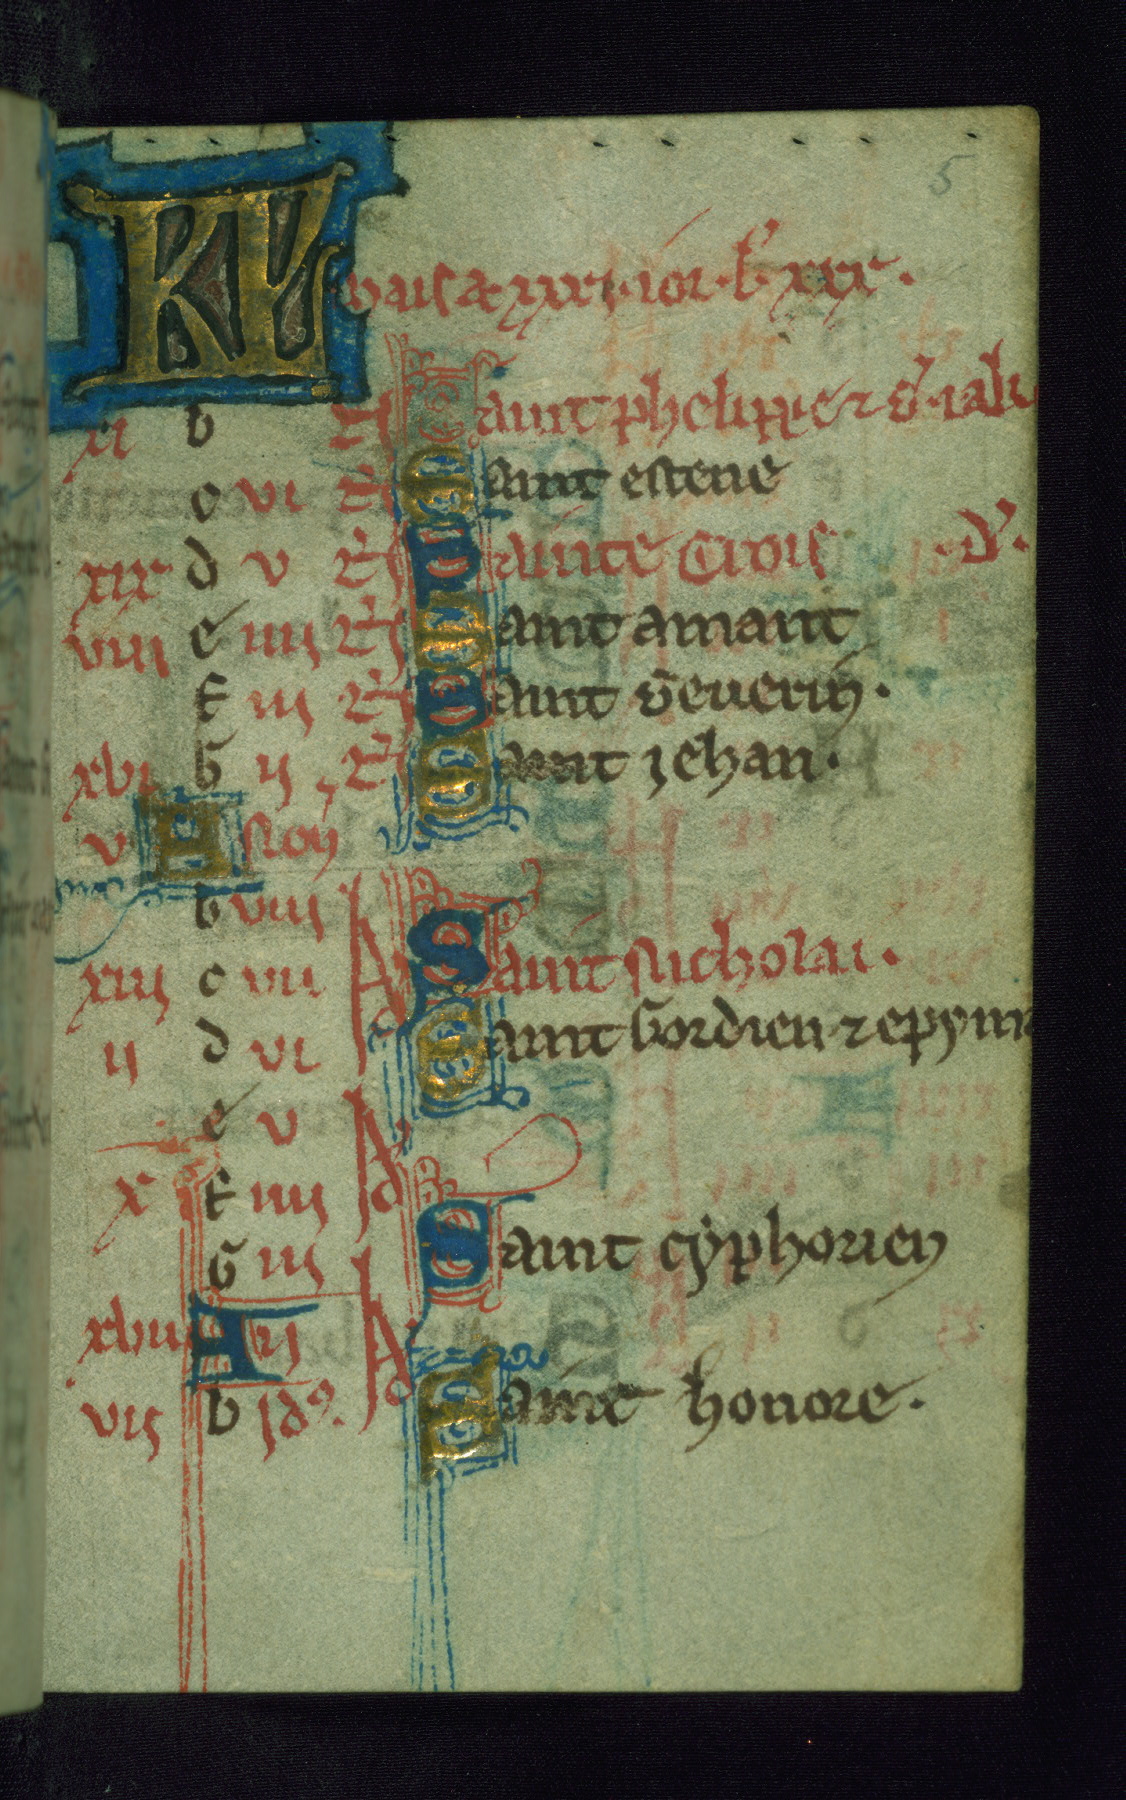 5
KL Mais a xxxi ior. l. xxx.
xi b Saint phelippe &
c vi Saint esteue
xix d v Sainte Crois .D.
viii e iiii Saint amant
f iii Saint Seuerin.
xvi G ii Saint jehan.
v A Noñ
b viii
xiii c vii Saint Nicholai.
ii d vi Saint Gordien &
e v
x f iiii
G iii Saint cyphorien
xviii A ii
vii b Saint honore.